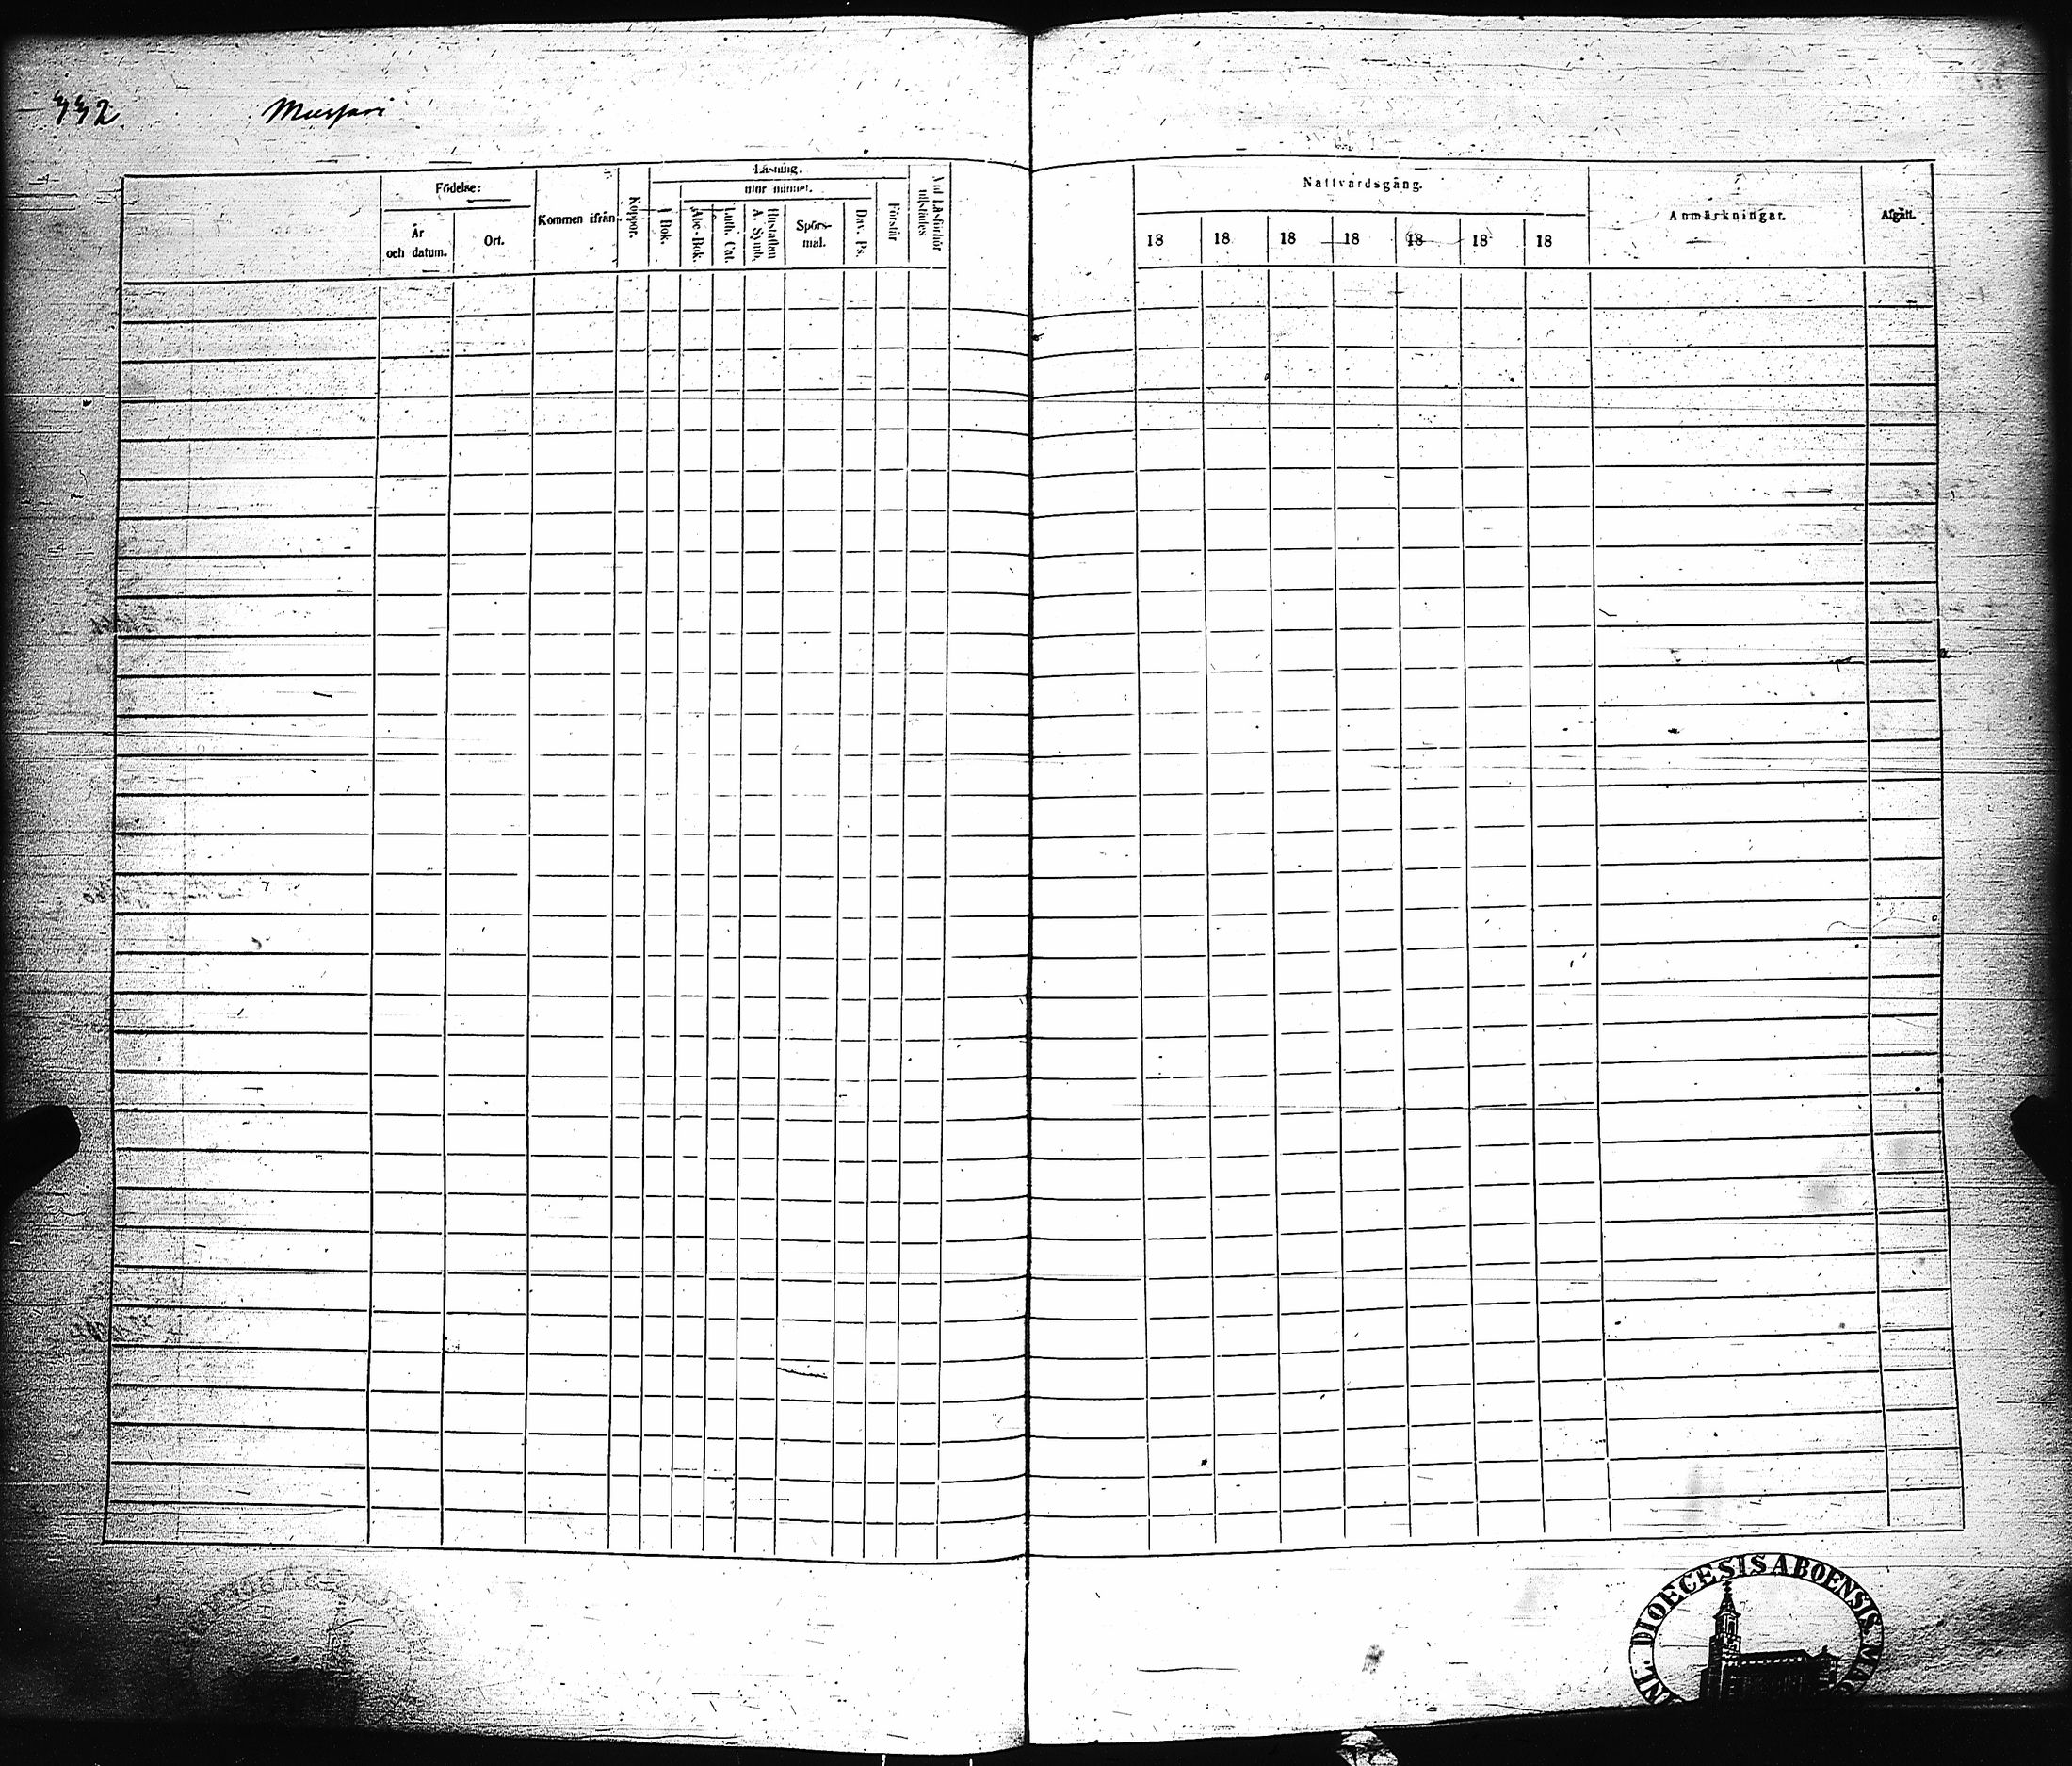 442
Födelse:
År
och datum.
Ort.
Kommen ifrån.
Koppor.
Läsning.
I Bok.
utur minnet.
Abc-Bok.
Luth. Cat.
Hustaflan
A. Symb.
Spörs-
mål.
Dav. Ps.
Förstår
Vid Läsförhör
tillstädes
Nattvardsgång.
18 18 18 18 18 18 18
Anmärkningar.
Afgått.
DIOECESIS ABOENSIS